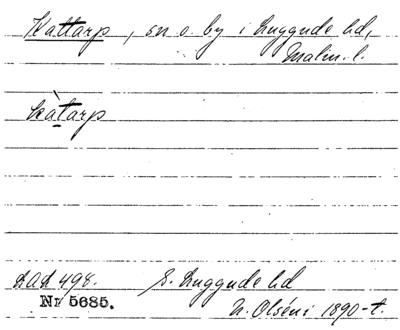 Kattarp, sn o. by i Luggude hd,
Malm. l.
kàtarp
LAL 498. S. Luggude hd
Nr 5685. N. Olséni 1890-t.